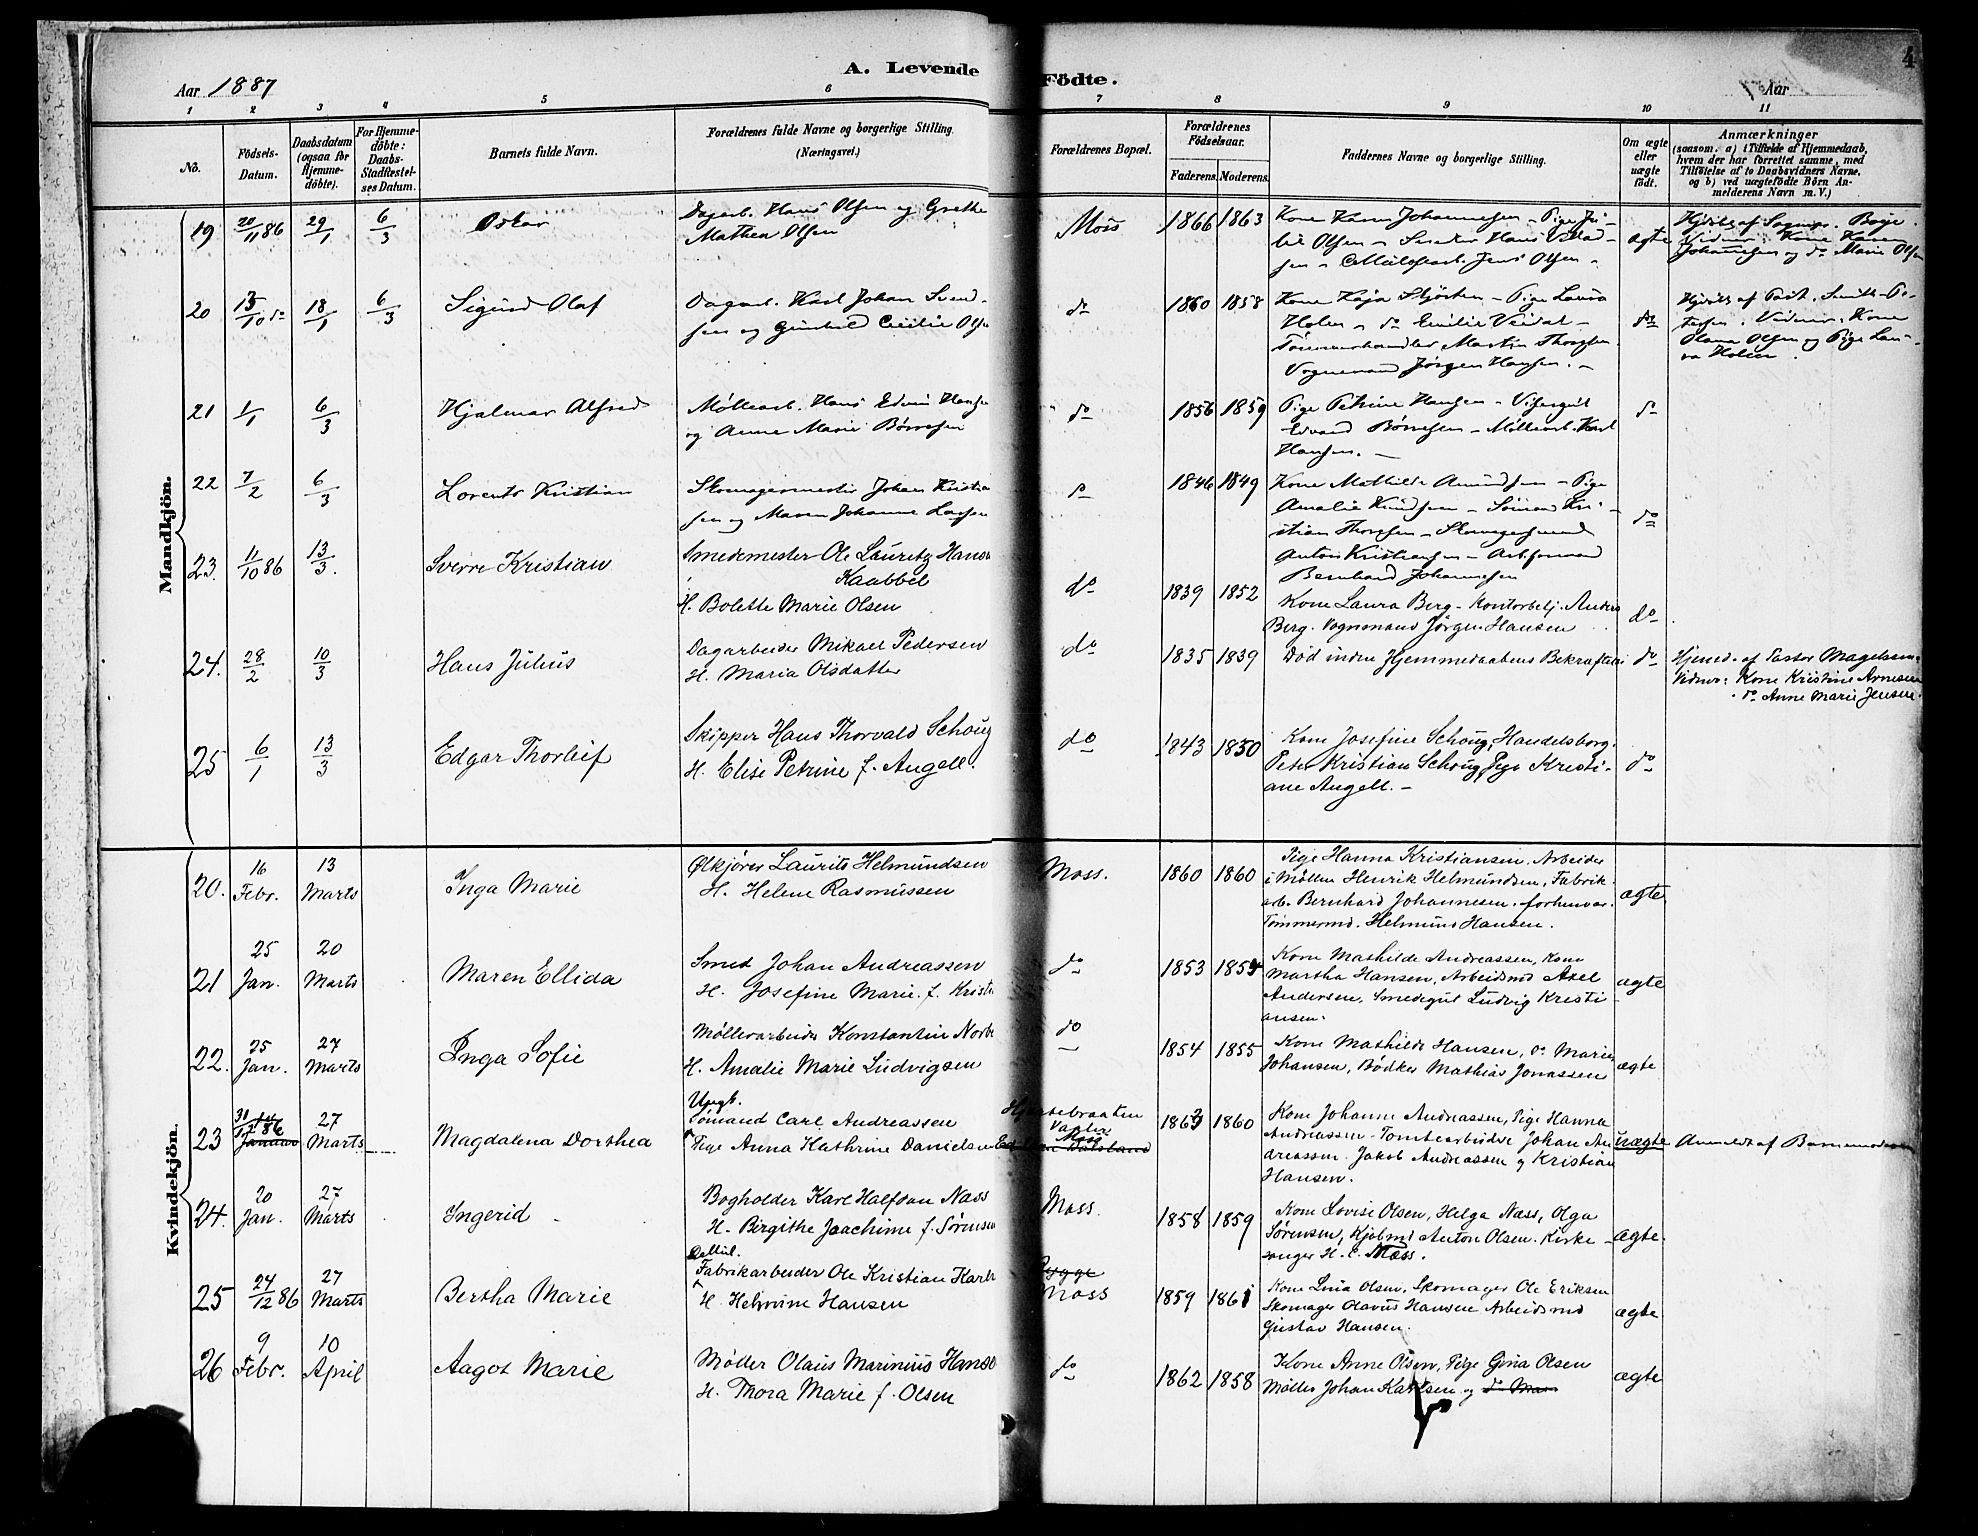 4
Aar 1887
A. Levende Födte.
Aar
1 2 3 4 5 6 7 8 9 10 11
No.
Födsels-Datum.
Daabsdatum (ogsaa for Hjemme-döbte).
For Hjemme-döbte: Daabs-Stadfæstel-ses Datum.
Barnets fulde Navn.
Forældrenes fulde Navne og borgerlige Stilling.
(Næringsvei.)
Forældrenes Bopæl.
Forældrenes Födselsaar.
Faderens. Moderens.
Faddernes Navne og borgerlige Stilling.
Om ægte eller uægte födt.
Anmærkninger
(saasom: a) i Tilfælde af Hjemmedaab,
hvem der har forrettet samme, med
Tilföielse af to Daabsvidners Navne,
og b) ved uægtefödte Börn An-
melderens Navn m. V.)
Mandkjön.
19 20/11 86 29/1 6/3 Oskar
Dagarb. Hans Olsen og Grethe
Mathea Olsen
Moss 1866 1863
Kone Karen Johannessen - Pige
Olsen - Hans
sen - Cellulosearb. Jens Olsen -
ægte
Johannessen og do Marie Olsen
20 13/10 do 18/1 6/3 Sigurd Olaf
Dagarb. Karl Johan Svend-
sen og Gunhild Cecilie
do 1860 1858
Kone Kaja - Pige Laura
Holen - do Emilie
Tømmerhandler Martin
Vognmand Jørgen Hansen. -
do
Vidner: Kone
Olava Olsen og Pige Lau-
ra Holen.
21 1/1 6/3 Hjalmar Alfred
Møllearb. Hans Edvin
og Anne Marie Børresen
do 1856 1859
Pige Petrine Hansen -
Edvard Børresen - Møllearb. Karl
Hansen. -
do
22 7/2 6/3 Lorents Kristian
Skomagermester Johan Kristian
sen og Maren Johanne Larsen
do 1846 1849
Kone Mathilde Amundsen - Pige
Amalie Knudsen - Sømand Kri-
stian Thorsen - Skomagersvend
Anton Kristiansen - Arb.formand
Bernhard Johannessen
do
23. 11/10 86 13/3. Sverre Kristian
Smedemester Ole Lauritz Hansen
Kaabbel
H. Bolette Marie Olsen
do 1839 1852
Kone Laura Berg - Kontorbetj. Anders
Berg. Vognmand Jørgen Hansen
do
24. 28/2 10/3 Hans Julius
Dagarbeider Mikael Pedersen
H. Maria Olsdatter
do 1835 1839
Død inden Hjemmedaabens Bekræftelse
do
Hjemd. af Pastor Magelssen.
Vidner: Kone Kristine Arnesen
do Anne Marie Jensen.
25 6/1 13/3 Edgar Thorleif
Skipper Hans Thorvald Schoug
H. Elise Petrine f. Angell.
do 1843 1850
Kone Josefine Schoug, Handelsborg.
Peter Kristian Schoug, Pige Kristi-
ane Angell. -
do
Kvindekjön.
20. 16 Febr. 13 Marts Inga Marie
Ølkjører Laurits Helmundsen
H. Helene Rasmussen
Moss. 1860 1860
Pige Hanna Kristiansen, Arbeider
i Møllen Henrik Helmundsen, Fabrik-
arb. Bernhard Johannesen. forhenvær.
Tømmermd. Helmund Hansen.
ægte
21 25 Jan. 20 Marts Maren Ellida
Smed Johan Andreassen
H. Josefine Marie f.
do 1853 1854
Kone Mathilde Andreassen, Kone
Martha Hansen, Arbeidsmd Axel
Andersen, Smedegut Ludvig Kristi
ansen.
ægte
22. 25 Jan. 27 Marts Inga Sofie
Møllerarbeider Konstantin
H. Amalie Marie Ludvigsen
do 1854 1855
Kone Mathilde Hansen, do Marie
Johansen, Bødker Mathias Jonassen
ægte
23 31/12 86 Januar 27 Marts Magdalena Dorthea
Ungk.
Sømand Carl Andreassen
Pige Anna Kathrine Danielsen
1863 1860
Kone Johanne Andreassen, Pige Hanna
Andreassen - Tomtearbeider Johan An
dreassen. Jakob Andreassen og Kristian
Hansen.
uægte
Anmeldt af Barnemoderen
24. 20 Jan. 27 Marts Ingerid
Bogholder Karl Halfdan Næss
H. Birgithe Joachime f. Sørensen
Moss. 1858 1859
Kone Lovise Olsen, Helga Næss, Olga
Sørensen, Kjøbmd Anton Olsen. Kirke-
sanger H. C. Næss.
ægte.
25 24/12 86 27 Marts Bertha Marie
Cellul.
Fabrikarbeider Ole Kristian
H. Helmine Hansen
Rygge
Moss 1859 1861
Kone Lina Olsen, Skomager Ole Eriksen
Skomager Olavus Hansen Arbeidsmd
Gustav Hansen.
ægte
26 9 Febr. 10 April Aagot Marie
Møller Olaus Marinius Hansen
H. Thora Marie f. Olsen
do 1862 1858
Kone Anne Olsen, Pige Gina Olsen
Møller Johan Karlsen og
ægte